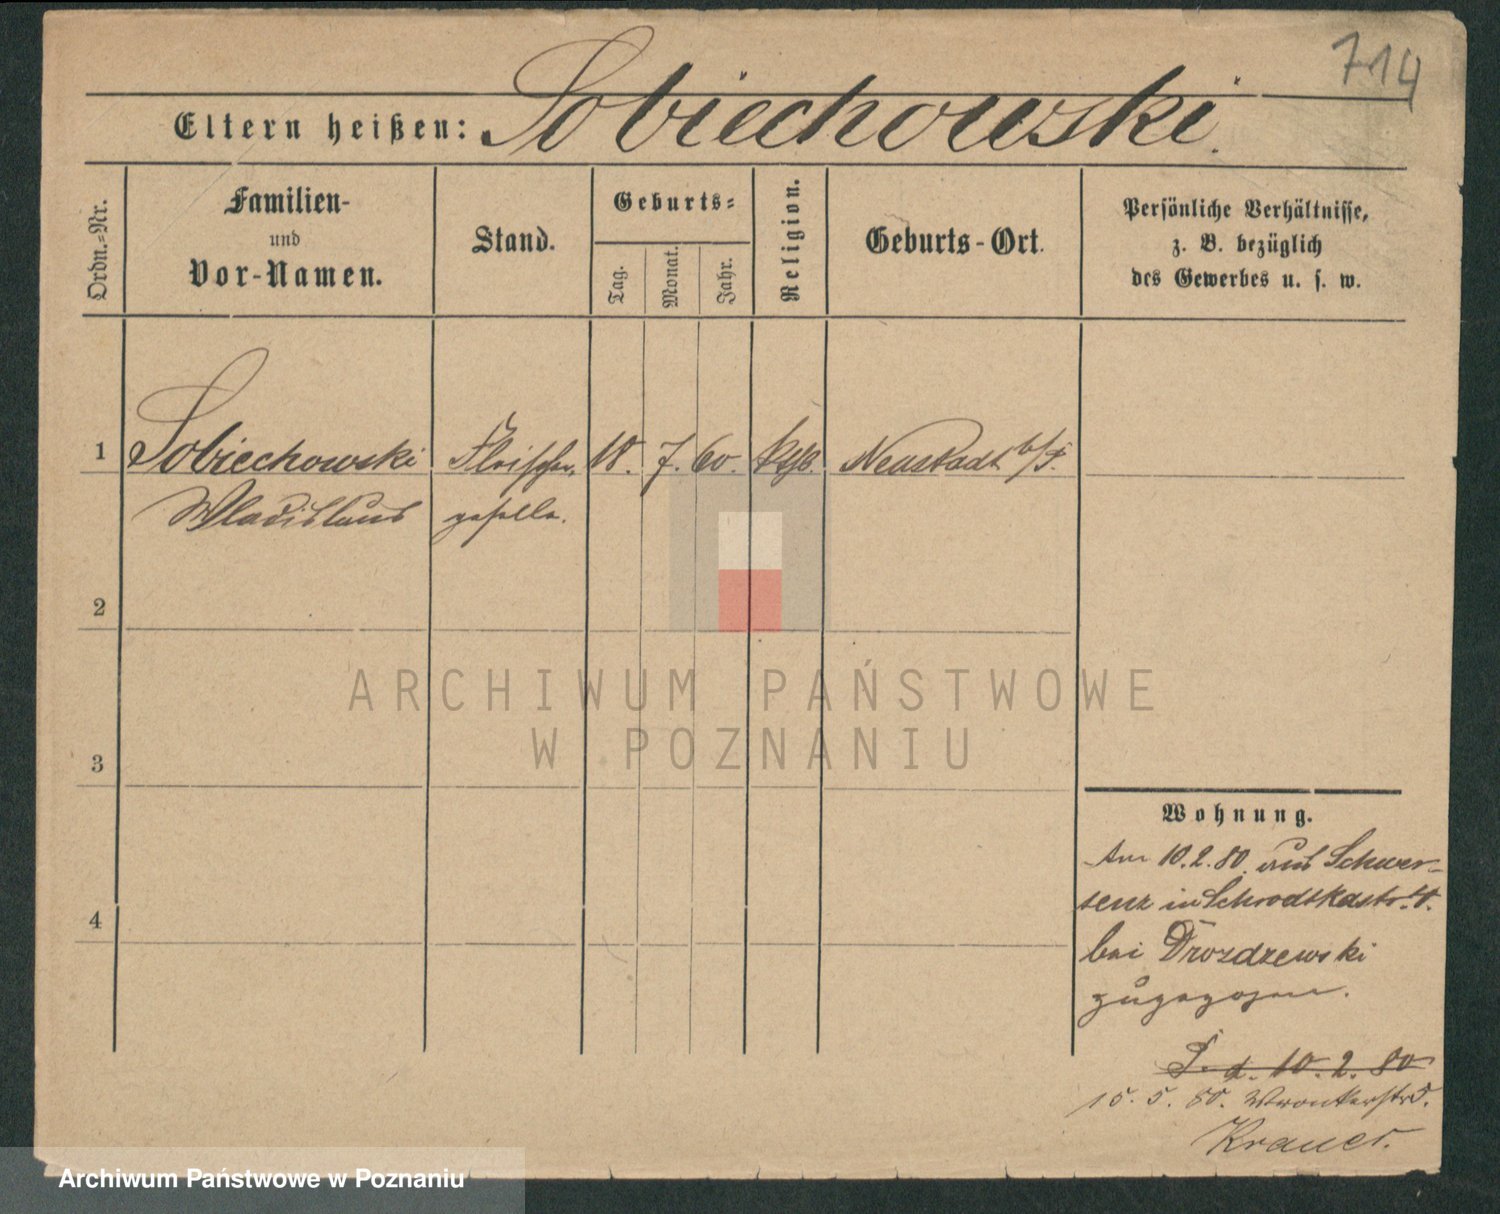 714
Eltern heißen: Sobiechowski.
Ordn.-Nr.
Familien-
und
Vor-Namen.
Stand.
Geburts-
Tag.
Monat.
Jahr.
Religion.
Geburts-Ort.
Persönliche Verhältnisse,
z. B. bezüglich
des Gewerbes u. s. w.
1 Sobiechowski Fleischer- 18. 7. 60. Neustadt b/P.
Wladislaus geselle.
2
ARCHIWUM PAŃSTWOWE
W POZNANIU
3
4
Wohnung.
Am 10.2.80. aus Schwer-
senz in Schrodkastr. 4.
bei Drozdzewski
zugezogen.
P. d. 10.2.80
15.5.80. Wronkerstr 5.
Krauer.
Archiwum Państwowe w Poznaniu